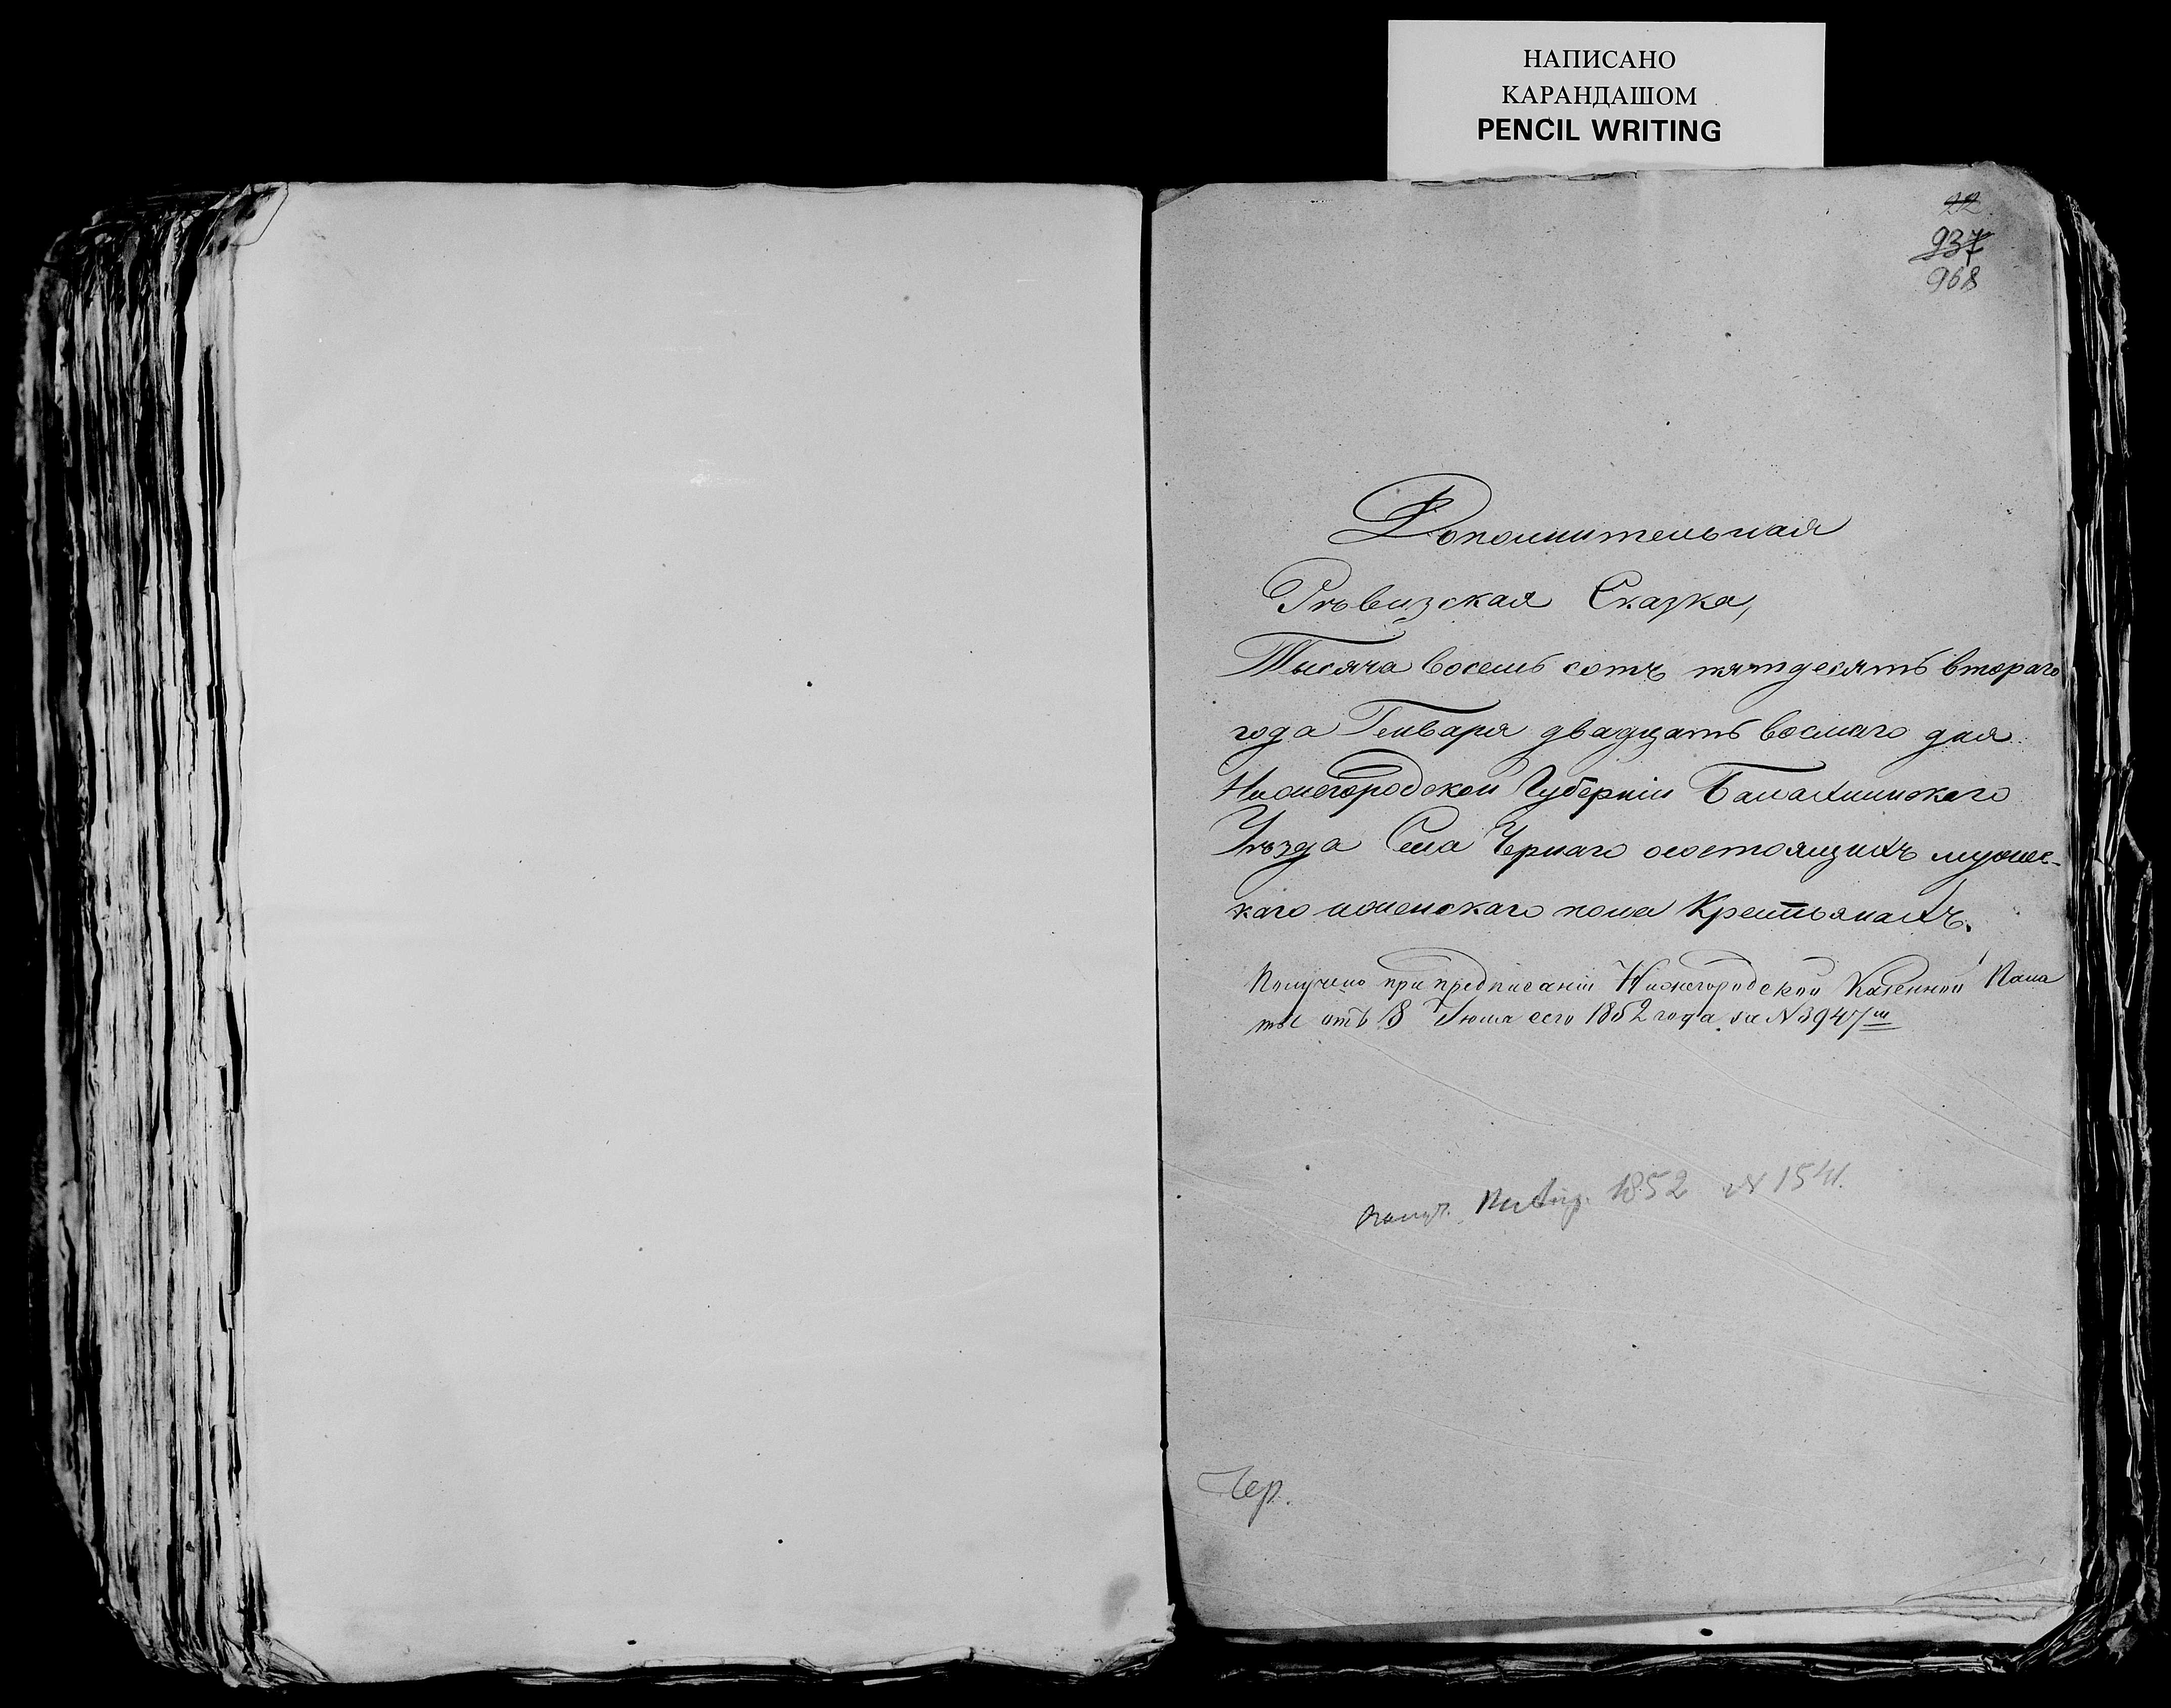 НАПИСАНО
КАРАНДАШОМ
PENCIL WRITING
22
937
968
Дополнительная
Рѣвизская Сказка,
Тысяча восемь сотъ пятдесятъ втораго
года Генваря двадцать восмаго дня
Нижегородской Губерніи Балахнинскаго
Уѣзда Села Чернаго осостоящихъ мужес-
каго иженскаго пола Крестьянахъ.
Получено при предписаніи Нижегородской Казенной Пала
ты отъ 18 Іюля сего 1852 года за N 3947
Получ. 1852 N 1541.
Чер.